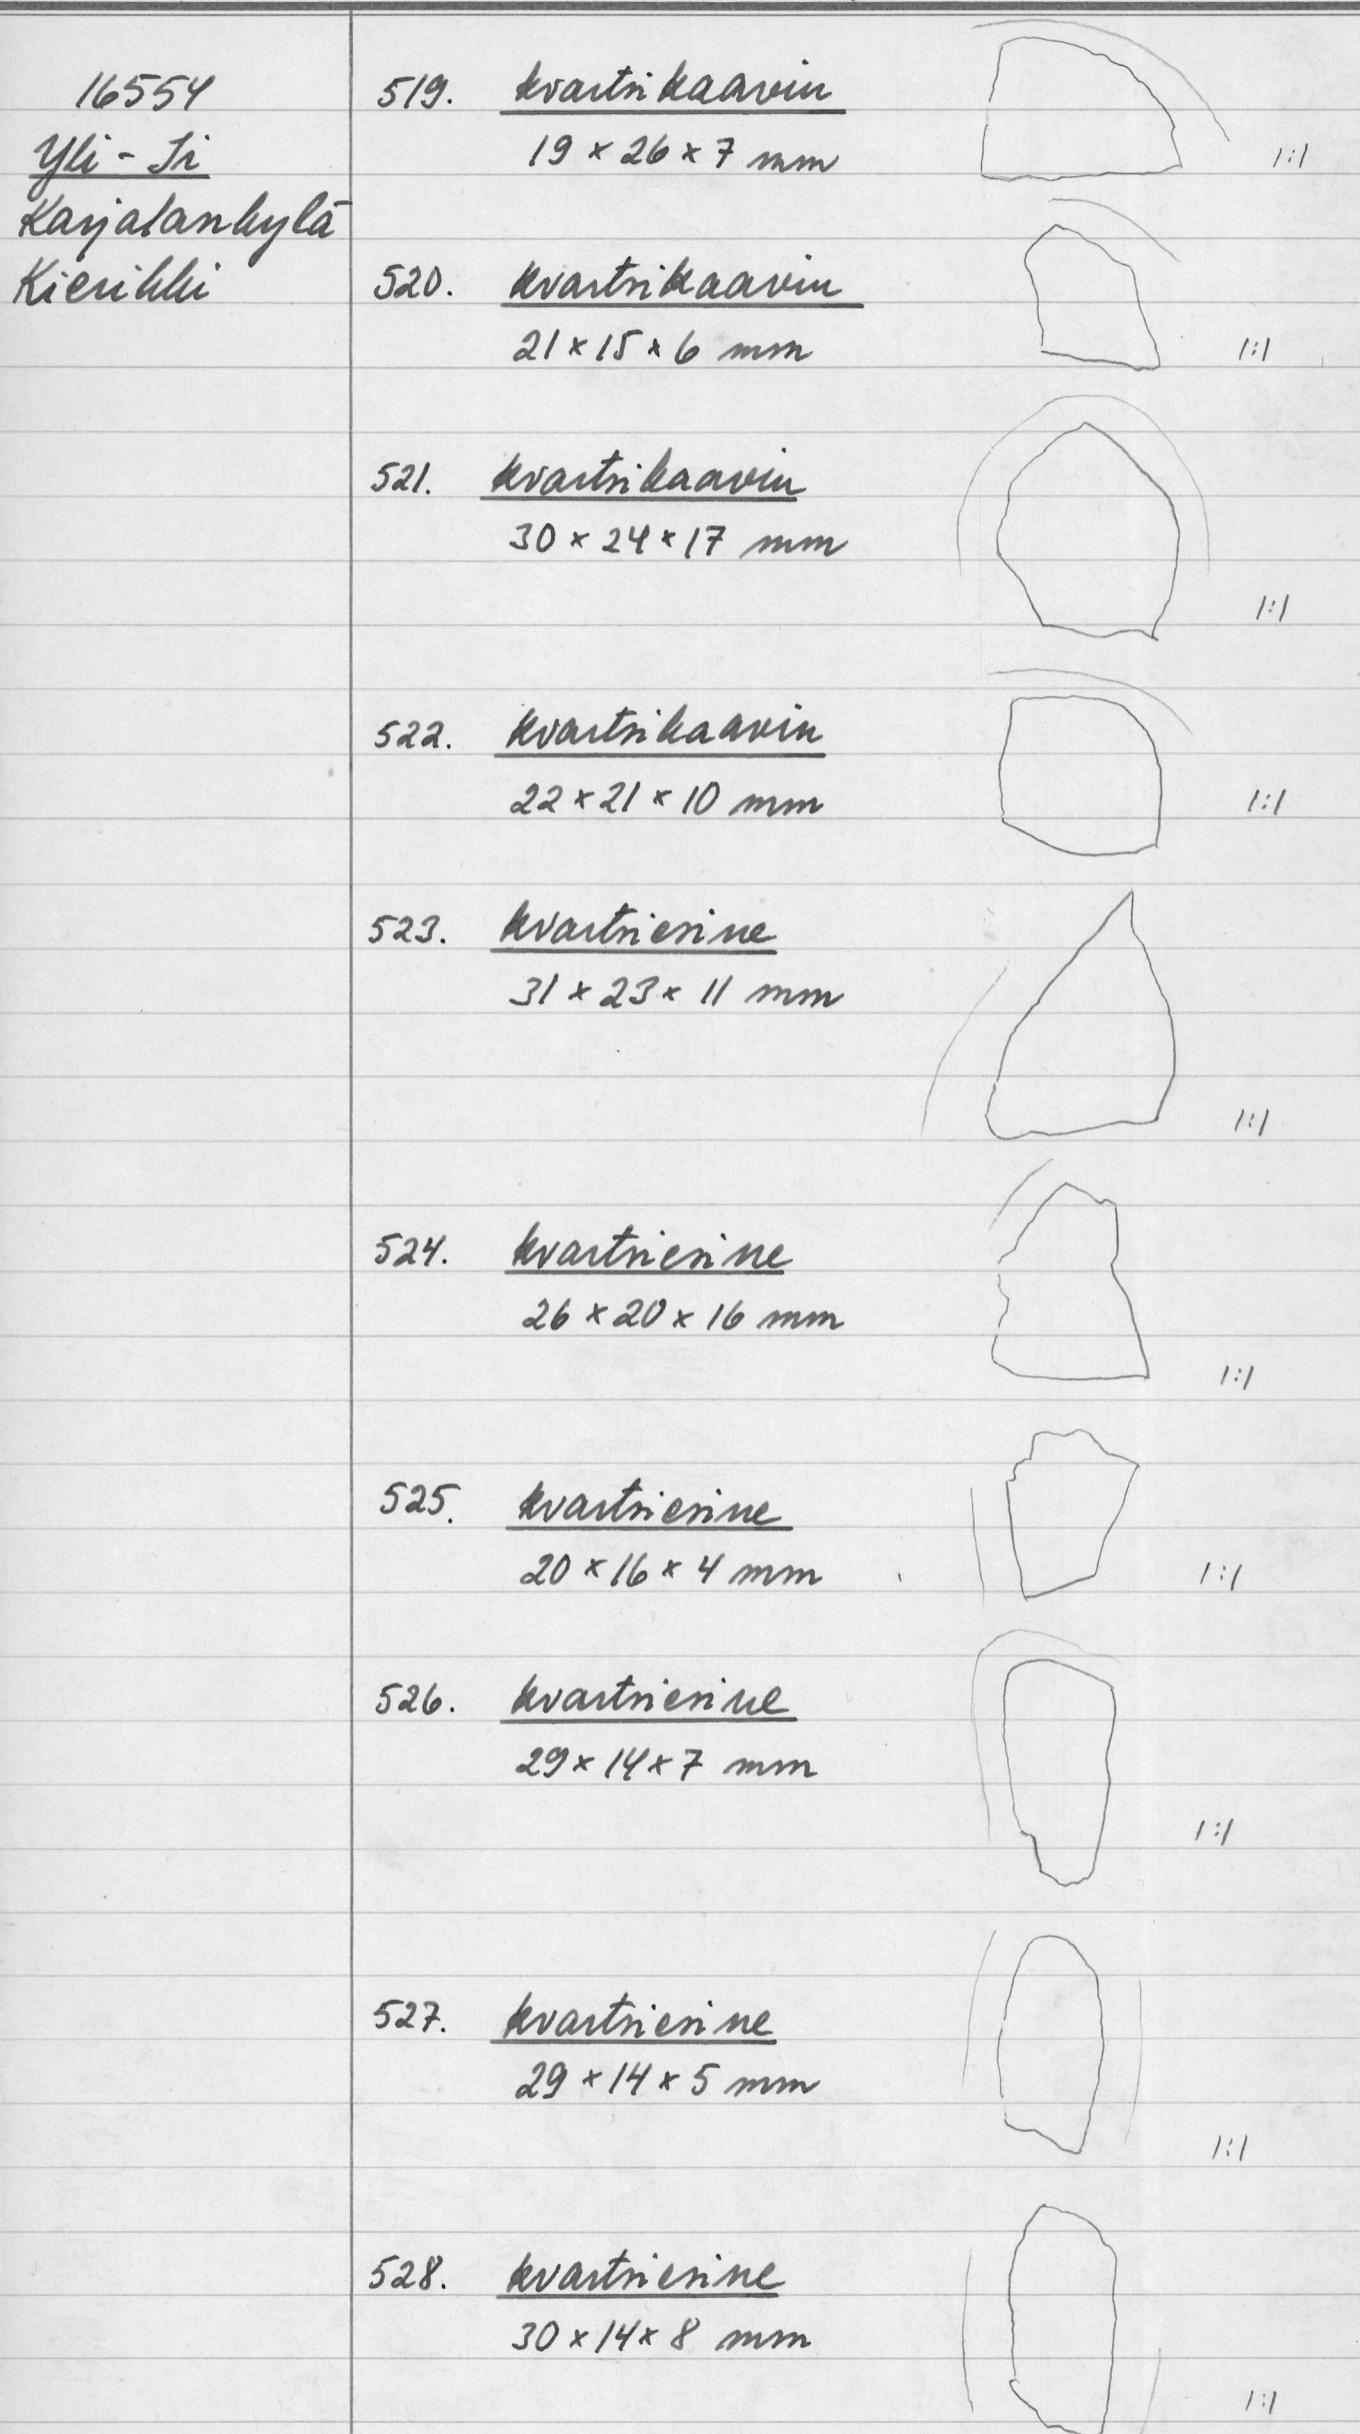 16554
Yli-Ii
Karjalankylä
Kierikki
519. kvartsikaavin
19 × 26 × 7 mm
1:1
520. kvartsikaavin
21 × 15 × 6 mm
1:1
521. kvartsikaavin
30 × 24 × 17 mm
1:1
522. kvartsikaavin
22 × 21 × 10 mm
1:1
523. kvartsiesine
31 × 23 × 11 mm
1:1
524. kvartsiesine
26 × 20 × 16 mm
1:1
525. kvartsiesine
20 × 16 × 4 mm
1:1
526. kvartsiesine
29 × 14 × 7 mm
1:1
527. kvartsiesine
29 × 14 × 5 mm
1:1
528. kvartsiesine
30 × 14 × 8 mm
1:1